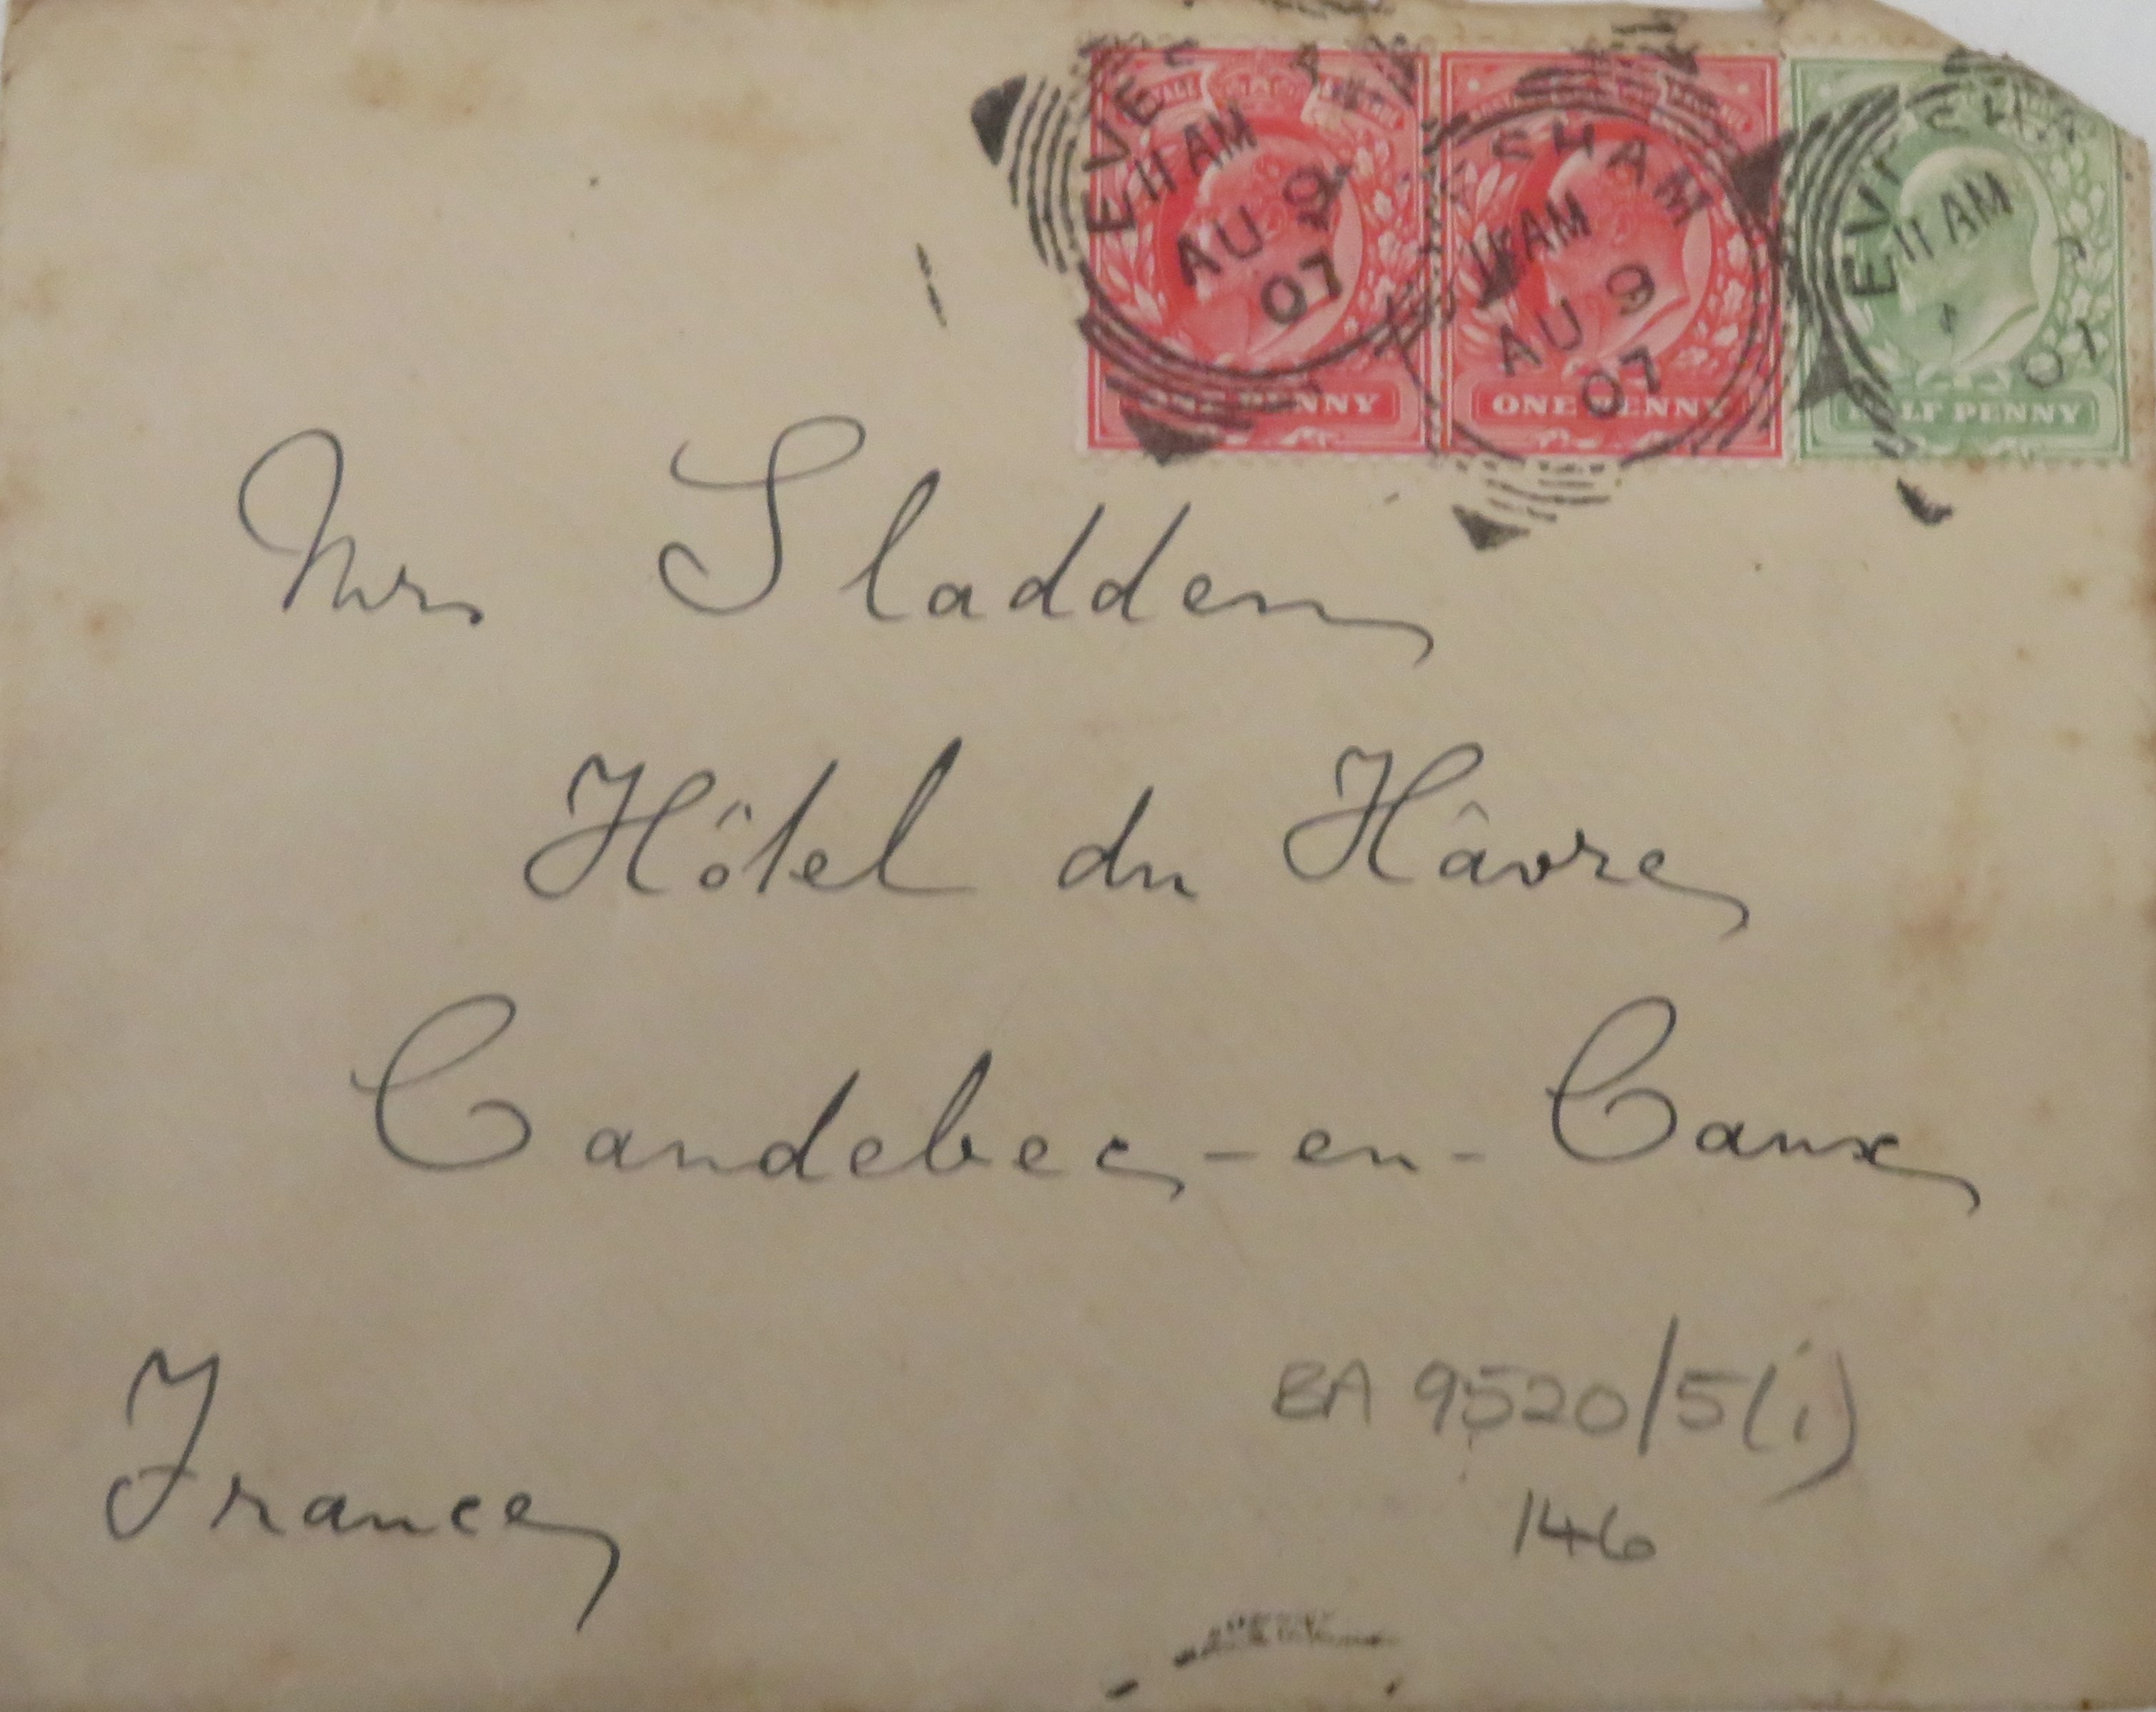 EVESHAM
11 AM
AU 9
07
ONE PENNY
EVESHAM
11 AM
AU 9
07
ONE PENNY
EVESHAM
11 AM
07
HALF PENNY
Mrs Sladden
Hôtel du Hâvre
Caudebec-en-Caux
France
BA 9520/5(i)
146